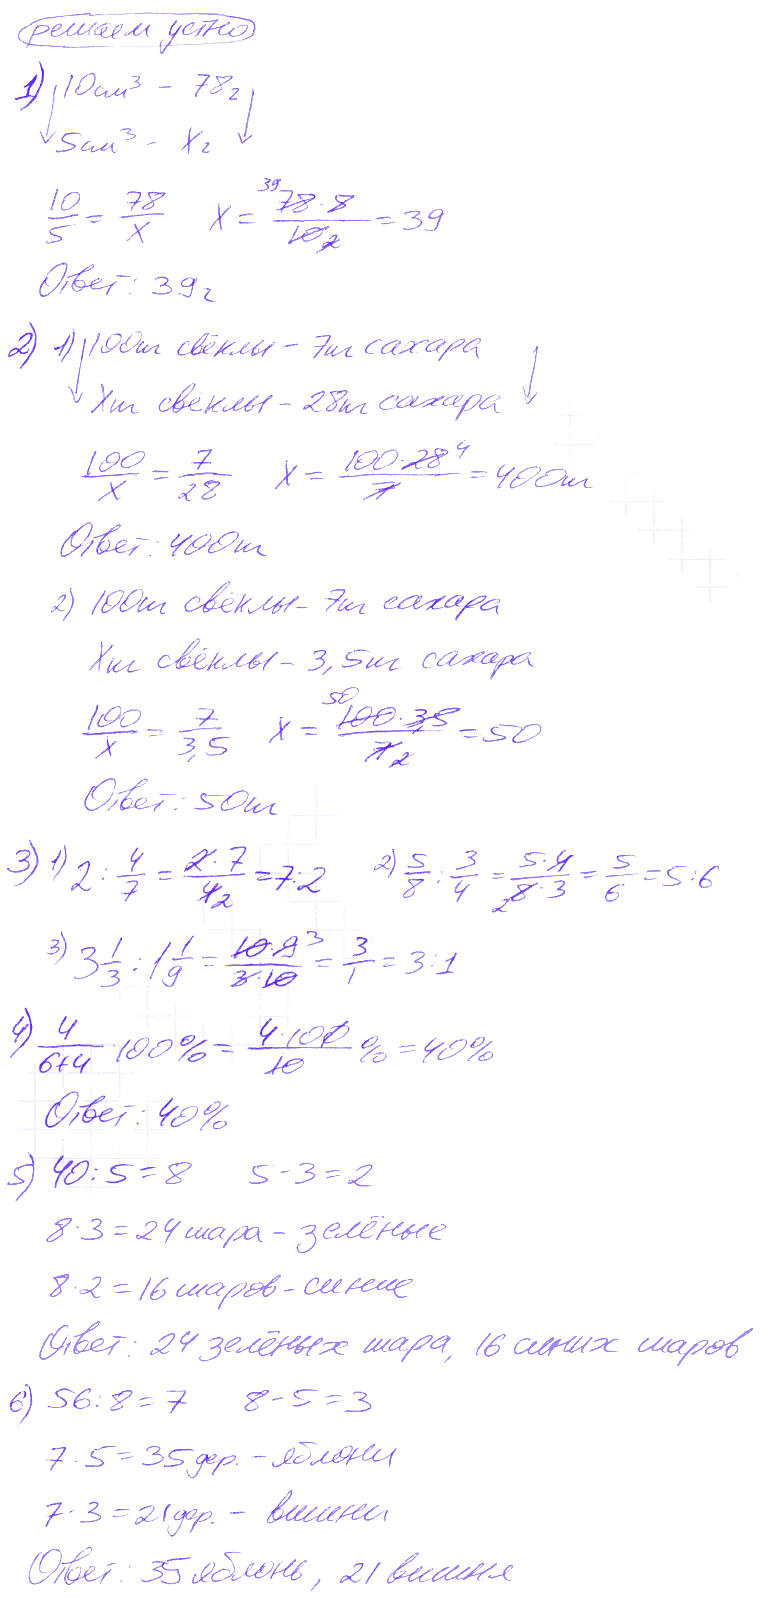 решаем устно
1) 10см³ – 78г
5см³ – Xг
10/5 = 78/X X = 78·5/10 = 39
Ответ: 39г
2) 1) 100т свёклы – 7т сахара
Xт свёклы – 28т сахара
100/X = 7/28 X = 100·28/7 = 400т
Ответ: 400т
2) 100т свёклы – 7т сахара
Xт свёклы – 3,5т сахара
100/X = 7/3,5 X = 100·3,5/7 = 50
Ответ: 50т
3) 1) 2 : 4/7 = 2·7/4 = 7:2 2) 5/8 : 3/4 = 5·4/8·3 = 5/6 = 5:6
3) 3 1/3 : 1 1/9 = 10·9/3·10 = 3/1 = 3:1
4) 4/6+4 · 100% = 4·100/10 % = 40%
Ответ: 40%
5) 40:5=8 5-3=2
8·3=24 шара – зелёные
8·2=16 шаров – синие
Ответ: 24 зелёных шара, 16 синих шаров
6) 56:8=7 8-5=3
7·5=35 дер. – яблони
7·3=21 дер. – вишни
Ответ: 35 яблонь, 21 вишня